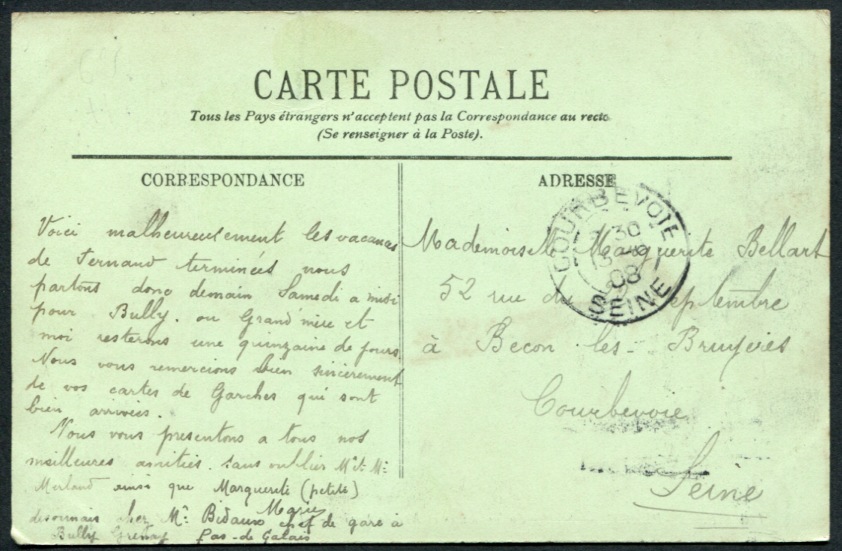 CARTE POSTALE
Tous les Pays étrangers n'acceptent pas la Correspondance au recto
(Se renseigner à la Poste).
CORRESPONDANCE
Voici malheureusement les vacances
de Fernand terminées nous
partons donc demain Samedi a midi
pour Bully. ou Grand'mère et
moi resterons une quinzaine de jours
Nous vous remercions bien sincèrement
de vos cartes de Garches qui sont
bien arrivées.
Nous vous presentons a tous nos
meilleures amitiés sans oublier Mr et Me
ainsi que Marguerite (petite)
Marie
désormais chez Mr Bidaux chef de gare à
Bully Grenay Pas-de Calais
ADRESSE
Mademoiselle Marguerite Bellart
52 rue du Septembre
à Becon les-Bruyères
Courbevoie
Seine
COURBEVOIE
30
08
SEINE